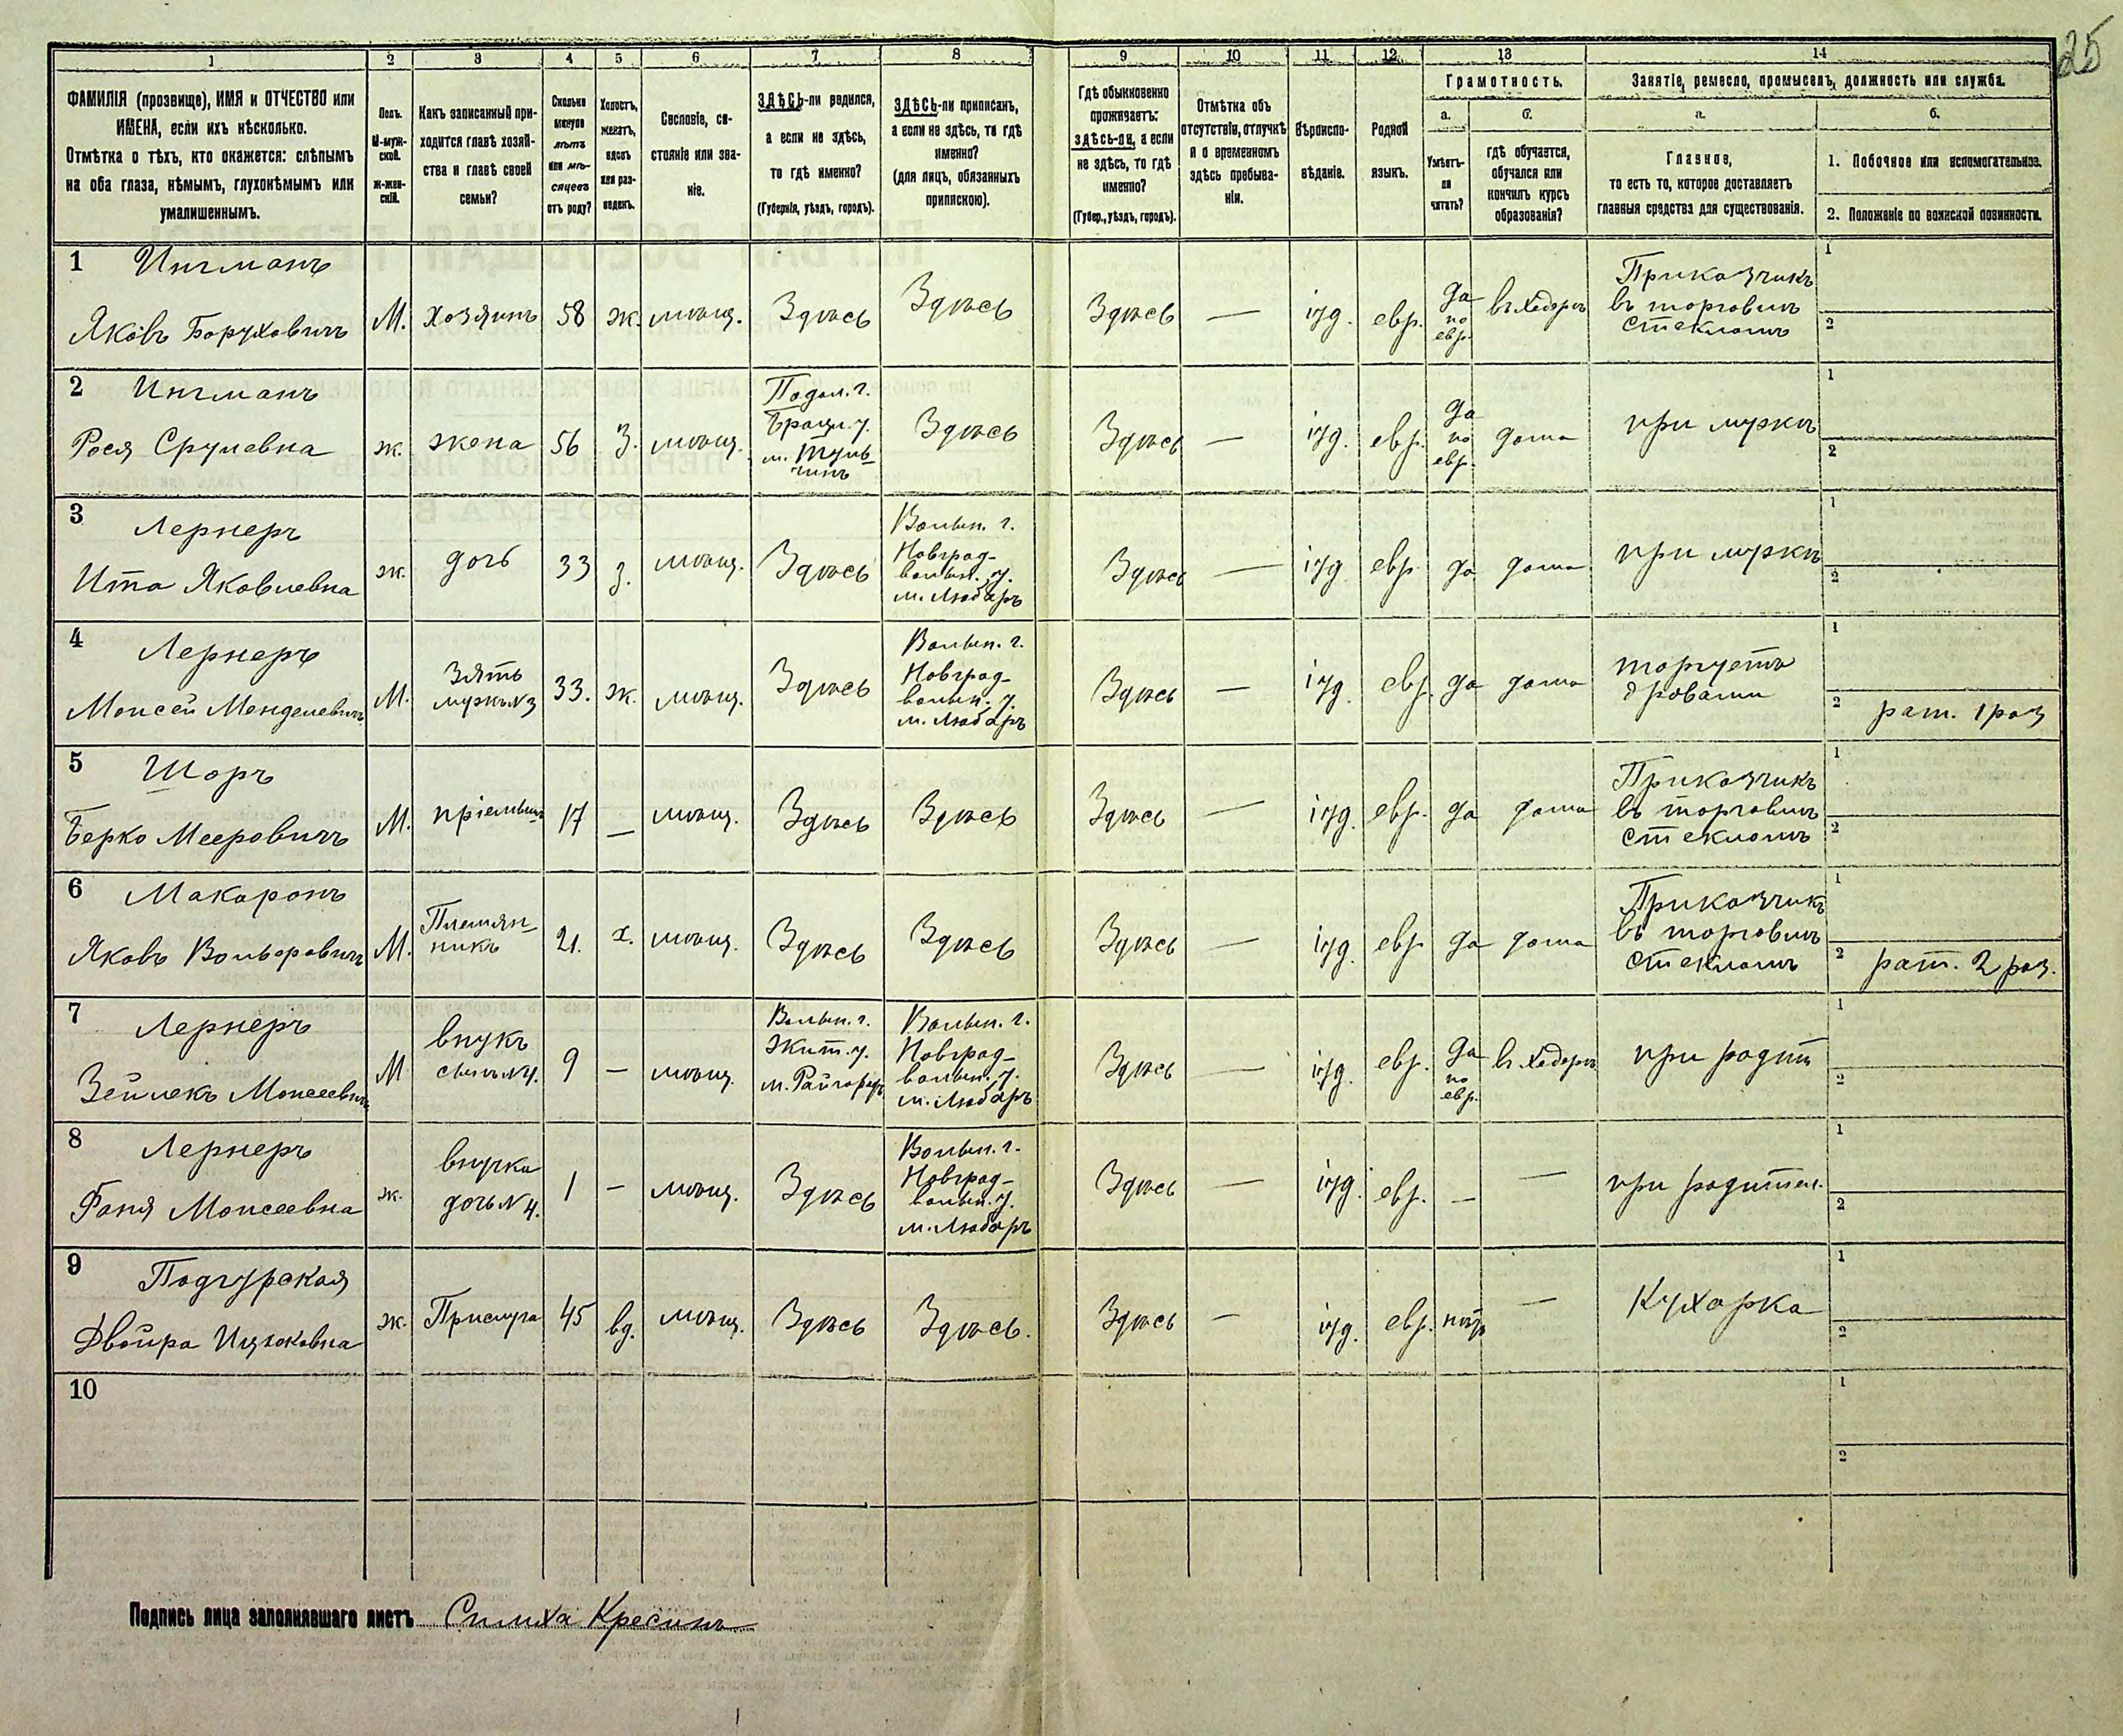 25
1 2 3 4 5 6 7 8 9 10 11 12 13 14
ФАМИЛІЯ (прозвище), ИМЯ и ОТЧЕСТВО или
ИМЕНА, если ихъ нѣсколько.
Отмѣтка о тѣхъ, кто окажется: слѣпымъ
на оба глаза, нѣмымъ, глухонѣмымъ или
умалишеннымъ.
Полъ.
М-муж-
ской.
Ж-жен-
скій.
Какъ записанный при-
ходится главѣ хозяй-
ства и главѣ своей
семьи?
Сколько
минуло
лѣтъ
или мѣ-
сяцевъ
отъ роду?
Холостъ,
женатъ,
вдовъ
или раз-
веденъ.
Сословіе, со-
стояніе или зва-
ніе.
ЗДѢСЬ-ли родился,
а если не здѣсь,
то гдѣ именно?
(Губернія, уѣздъ, городъ).
ЗДѢСЬ-ли приписанъ,
а если не здѣсь, то гдѣ
именно?
(для лицъ, обязанныхъ
припискою).
Гдѣ обыкновенно
проживаетъ:
ЗДѢСЬ-ли, а если
не здѣсь, то гдѣ
именно?
(Губер., уѣздъ, городъ).
Отмѣтка объ
отсутствіи, отлучкѣ
и о временномъ
здѣсь пребыва-
ніи.
Вѣроиспо-
вѣданіе.
Родной
языкъ.
Грамотность.
а.
Умѣетъ-
ли
читать?
б.
гдѣ обучается,
обучался или
кончилъ курсъ
образованія?
Занятіе, ремесло, промыселъ, должность или служба.
а.
Главное,
то есть то, которое доставляетъ
главныя средства для существованія.
б.
1. Побочное или вспомогательное.
2. Положеніе по воинской повинности.
1 Ингманъ
Яковъ Боруховичъ
М.
хозяинъ
58
ж.
мѣщ.
Здѣсь
Здѣсь
Здѣсь
—
іуд.
евр.
да
по
евр.
въ хедерѣ
Приказчикъ
въ торговлѣ
стекломъ
1
2
2 Ингманъ
Рося Срулевна
ж.
жена
56
З.
мѣщ.
Подол. г.
Брацл. у.
м. Туль-
чинъ
Здѣсь
Здѣсь
—
іуд.
евр.
да
по
евр.
дома
при мужѣ
1
2
3 Лернеръ
Ита Яковлевна
ж.
дочь
33
з.
мѣщ.
Здѣсь
Волын. г.
Новград-
волын. у.
м. Любаръ
Здѣсь
—
іуд
евр.
да
дома
при мужѣ
1
2
4 Лернеръ
Моисей Менделевичъ
М.
Зять
мужъ №3
33.
ж.
мѣщ.
Здѣсь
Волын. г.
Новград-
волын. у.
м. Любаръ
Здѣсь
—
іуд.
евр.
да
дома
торгуетъ
дровами
1
2 рат. 1 раз
5 Шоръ
Берко Мееровичъ
М.
пріемышъ
17
—
мѣщ.
Здѣсь
Здѣсь
Здѣсь
—
іуд.
евр.
да
дома
Приказчикъ
въ торговлѣ
стекломъ
1
2
6 Макаронъ
Яковъ Вольфовичъ
М.
Племян-
никъ
21.
х.
мѣщ.
Здѣсь
Здѣсь
Здѣсь
—
іуд.
евр
да
дома
Приказчикъ
въ торговлѣ
стекломъ
1
2 рат. 2 раз.
7 Лернеръ
Зейлекъ Моисеевичъ
М
внукъ
сынъ №4.
9
—
мѣщ.
Волын. г.
Жит. у.
м. Райгородъ
Волын. г.
Новград-
волын. у.
м. Любаръ
Здѣсь
—
іуд.
евр.
да
по
евр.
въ хедерѣ
при родит
1
2
8 Лернеръ
Фаня Моисеевна
ж.
внучка
дочь №4.
1
—
мѣщ.
Здѣсь
Волын. г.
Новград-
волын. у.
м. Любаръ
Здѣсь
—
іуд.
евр.
—
—
при родител.
1
2
9 Подгурская
Двойра Ицковна
ж.
Прислуга
45
вд.
мѣщ.
Здѣсь
Здѣсь.
Здѣсь
—
іуд.
евр.
нѣтъ
—
Кухарка
1
2
10
1
2
Подпись лица заполнявшаго листъ Симха Кресинъ